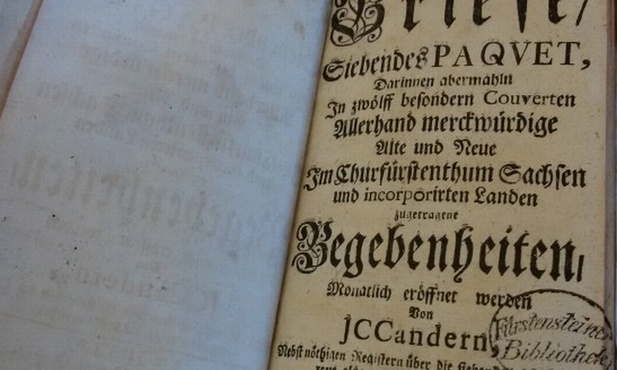 Briefe/
Siebendes PAQVET,
Darinnen abermahln
In zwölff besondern Couverten
Allerhand merckwürdige
Alte und Neue
Im Churfürstenthum Sachsen
und incorporirten Landen
zugetragene
Begebenheiten/
Monatlich eröffnet werden
Von
JCCandern,
Fürstensteiner
Bibliothek
Nebst nöthigen Registern über die sieben